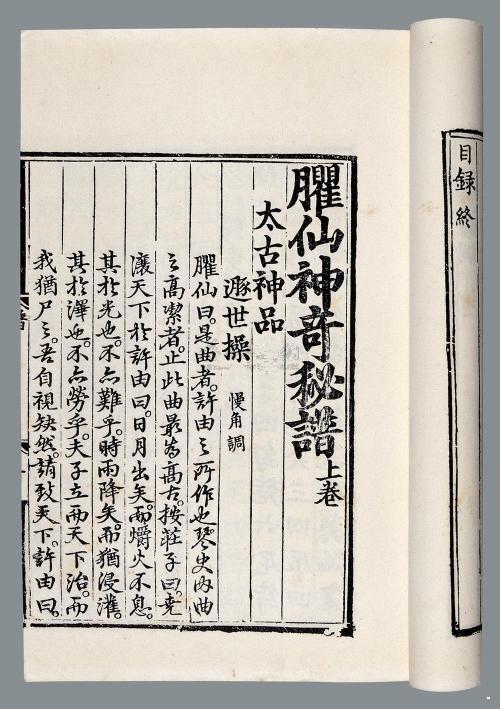 目録終
臞仙神奇秘譜上卷
太古神品
遯世操 慢角調
臞仙曰。是曲者。許由之所作也。琴史内曲
之高潔者。止此曲最為高古。按莊子曰。堯
讓天下於許由曰。日月出矣。而爝火不息。
其於光也。不亦難乎。時雨降矣。而猶浸灌。
其於澤也。不亦勞乎。夫子立而天下治。而
我猶尸之。吾自視缺然。請致天下。許由曰。